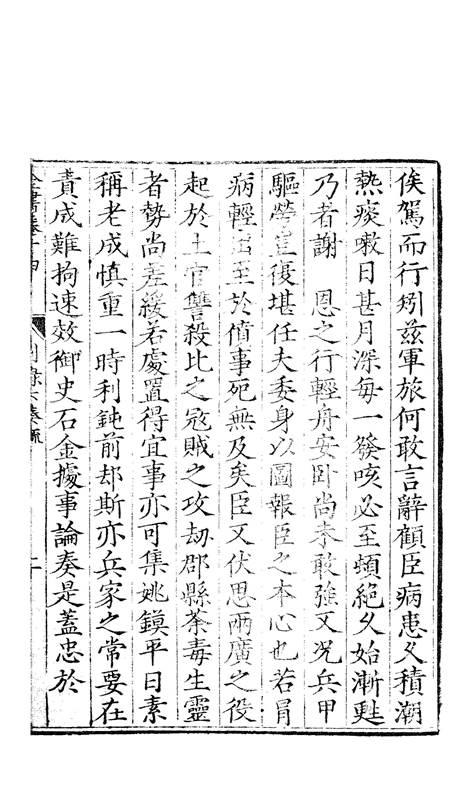 俟駕而行矧茲軍旅何敢言辭顧臣病患久積潮
熱痰嗽日甚月深每一發咳必至頓絕久始漸甦
乃者謝　恩之行輕舟安卧尚未敢強又况兵甲
驅勞豈復堪任夫委身以圖報臣之本心也若冒
病輕出至於僨事死無及矣臣又伏思兩廣之役
起於土官讐殺比之寇賊之攻劫郡縣荼毒生靈
者勢尚差緩若處置得宜事亦可集姚鏌平日素
稱老成慎重一時利鈍前却斯亦兵家之常要在
責成難拘速效御史石金據事論奏是蓋忠於
全書卷十四　別錄六奏疏　二